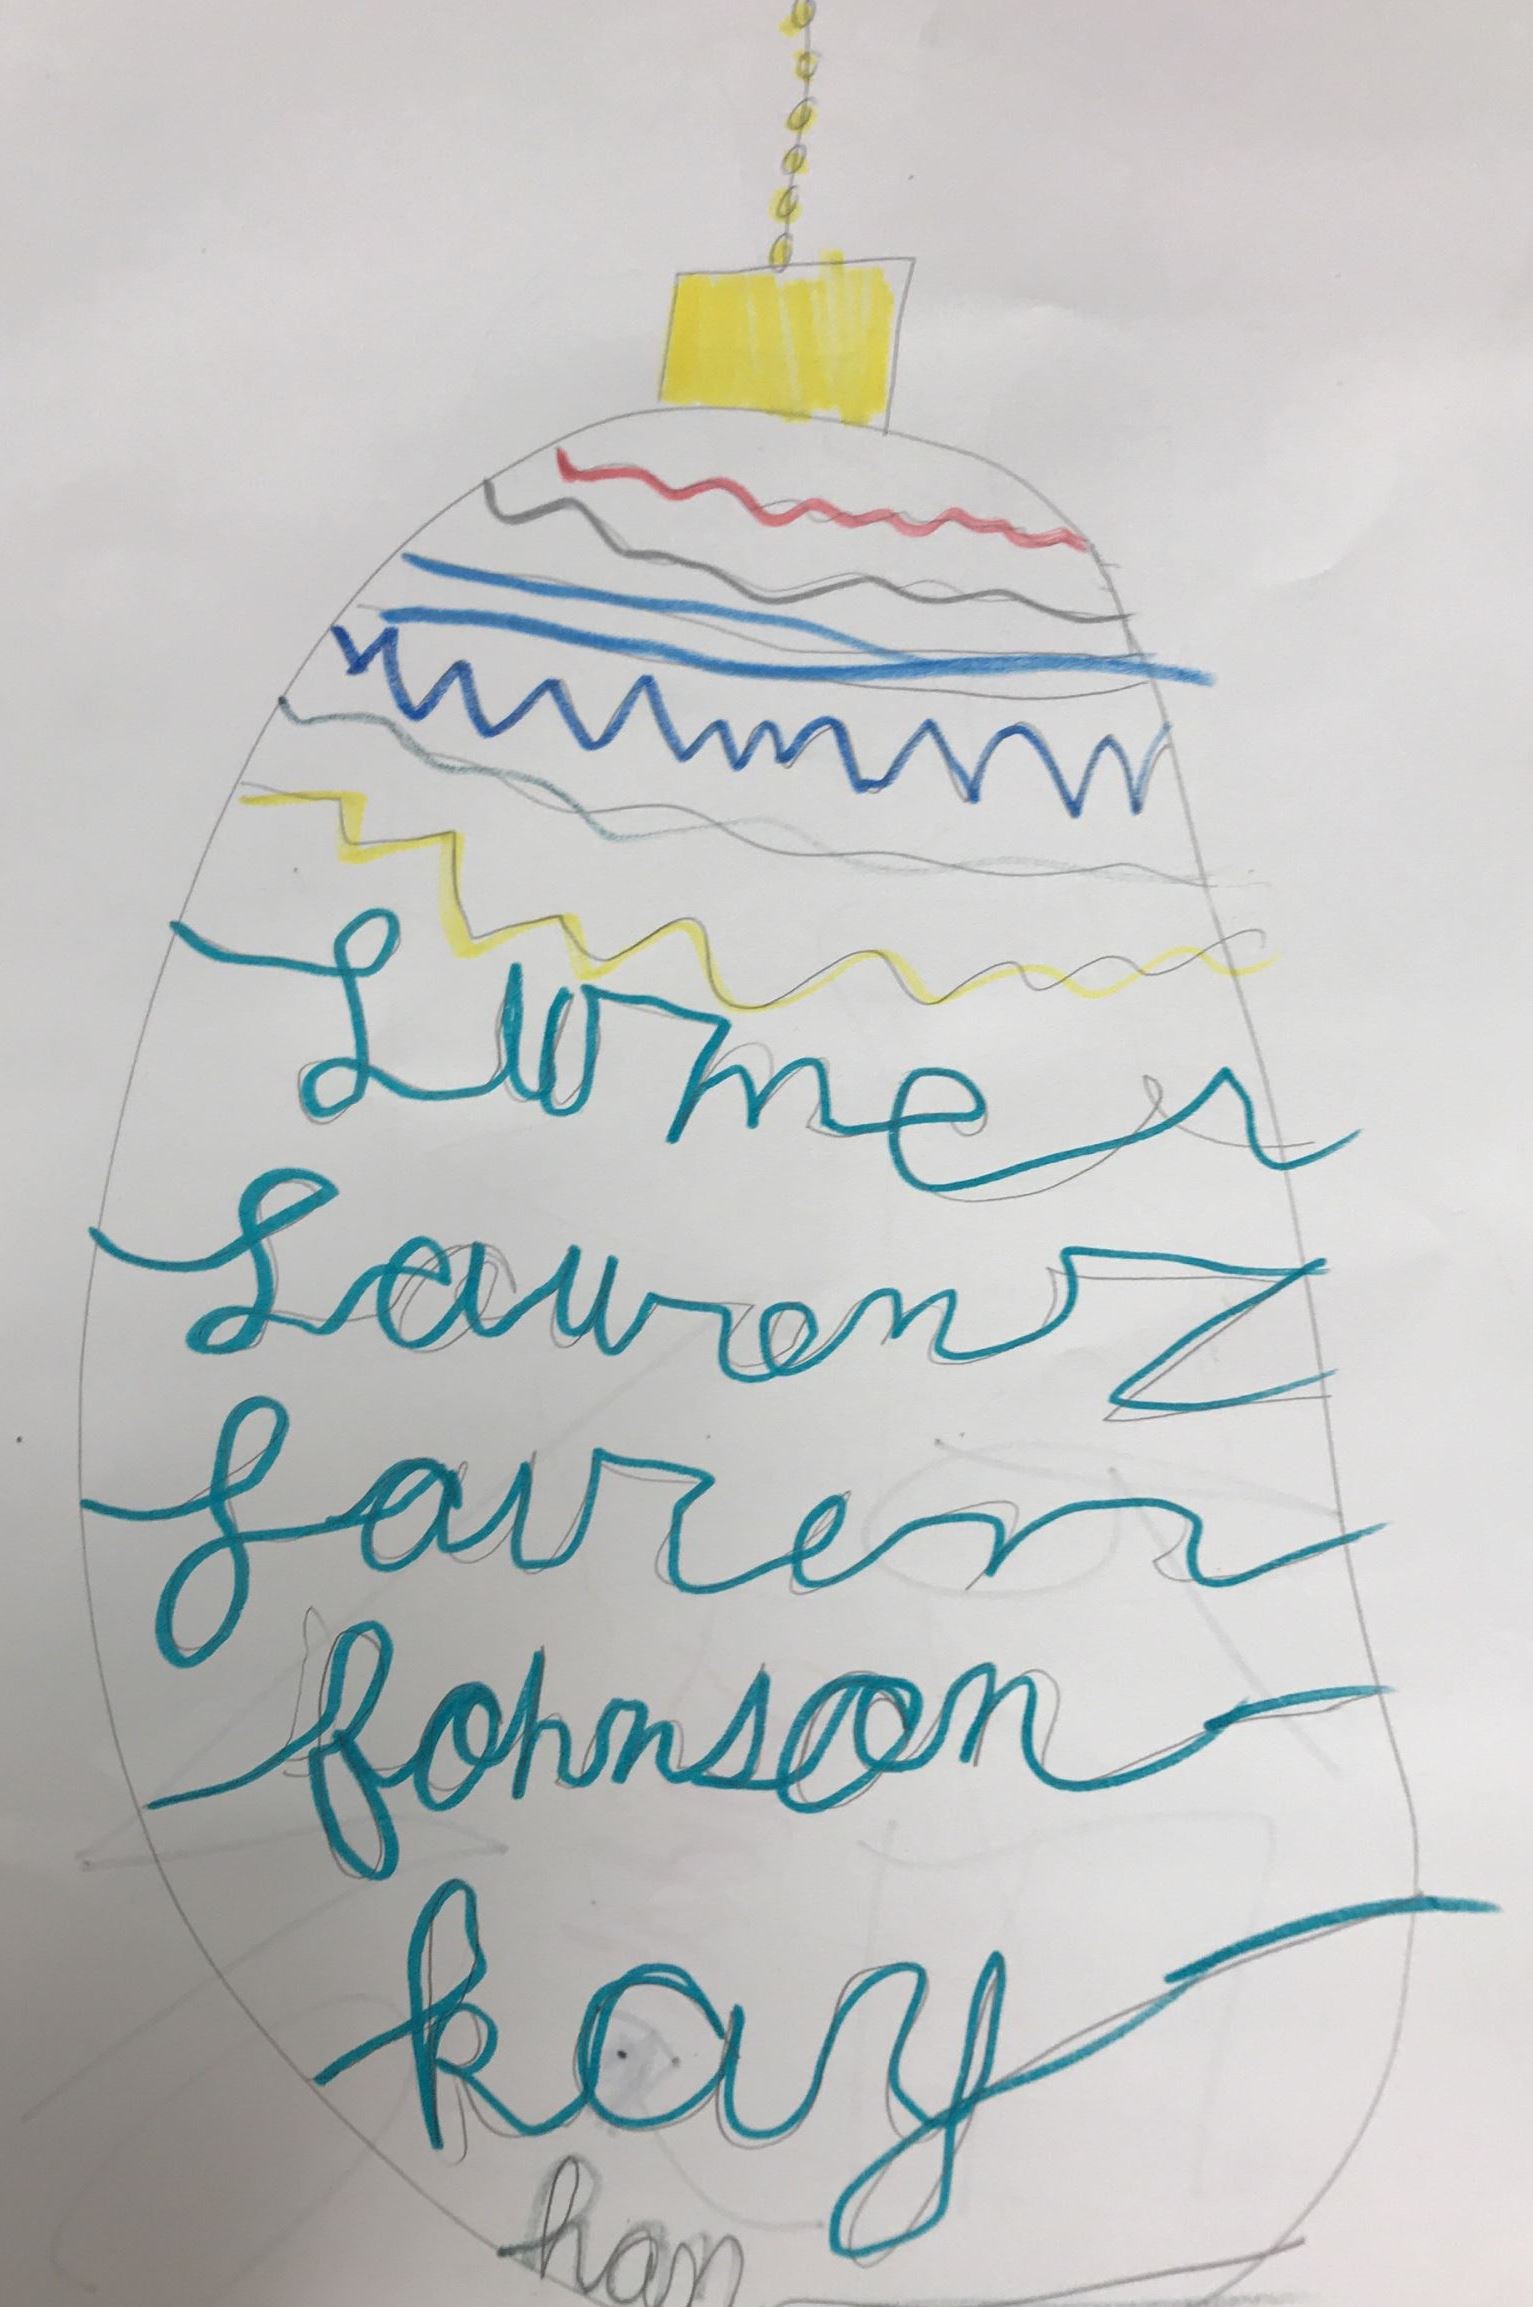 Lawrenz
Lauren
Johnson
kay
han